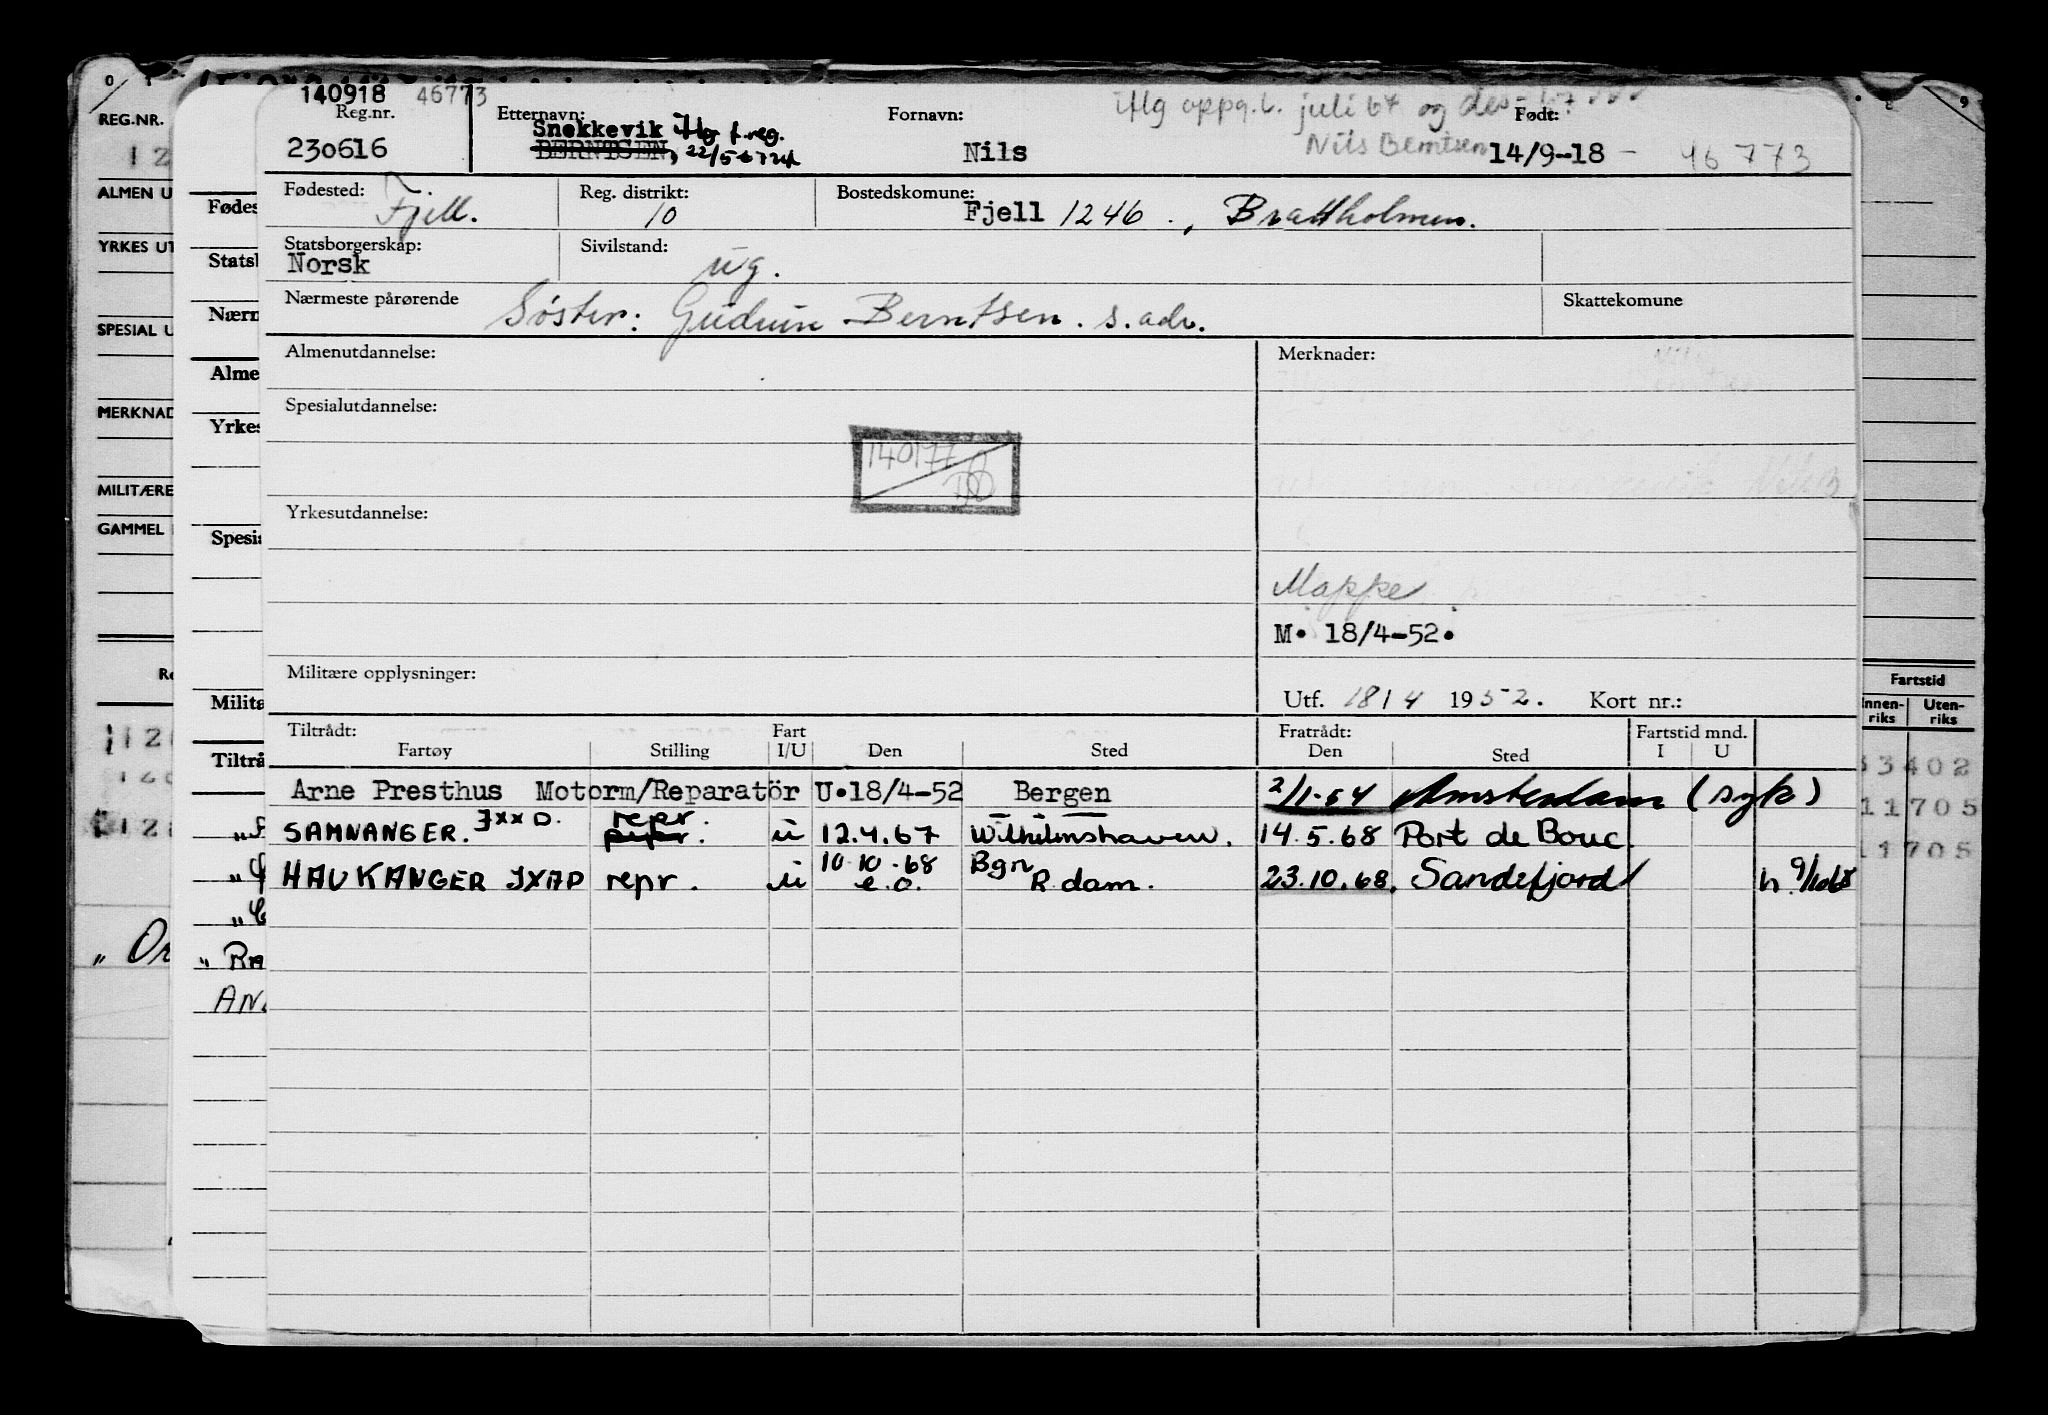 140918 46773
Reg.nr. Etternavn: Fornavn: Født:
iflg oppg. juli 67 og
Snekkevik iflg f.reg.
230616 BERNTSEN, 22/5-67 Nils Nils Berntsen 14/9-18 - 46773
Fødested: Fjell. Reg. distrikt: 10 Bostedskomune: Fjell 1246 ., Brattholmen.
Statsborgerskap: Norsk Sivilstand: ug.
Nærmeste pårørende Søster: Gudrun Berntsen. s. adr. Skattekomune
Almenutdannelse: Merknader:
Spesialutdannelse:
140177
Yrkesutdannelse:
Mappe
M. 18/4-52.
Militære opplysninger:
Utf. 18/4 1952. Kort nr.:
Tiltrådt: Fart Fratrådt: Fartstid mnd.
Fartøy Stilling I/U Den Sted Den Sted I U
Arne Presthus Motorm/Reparatör U. 18/4-52 Bergen 2/1-54 Amsterdam (syk)
SAMNANGER. JXXD. repr. u 12.4.67 Wilhelmshaven. 14.5.68 Port de Bouc.
HAUKANGER JXAD repr. u 10.10.68 e.o. Bgn R.dam. 23.10.68. Sandefjord
REG.NR.
ALMEN U
YRKES UT
SPESIAL U
MERKNAD
MILITÆRE
GAMMEL
Fødes
Stats
Nærn
Alme
Yrkes
Spesia
Milita
Tiltrå
Fartstid
Innen-riks Uten-riks
33402
11705
11705